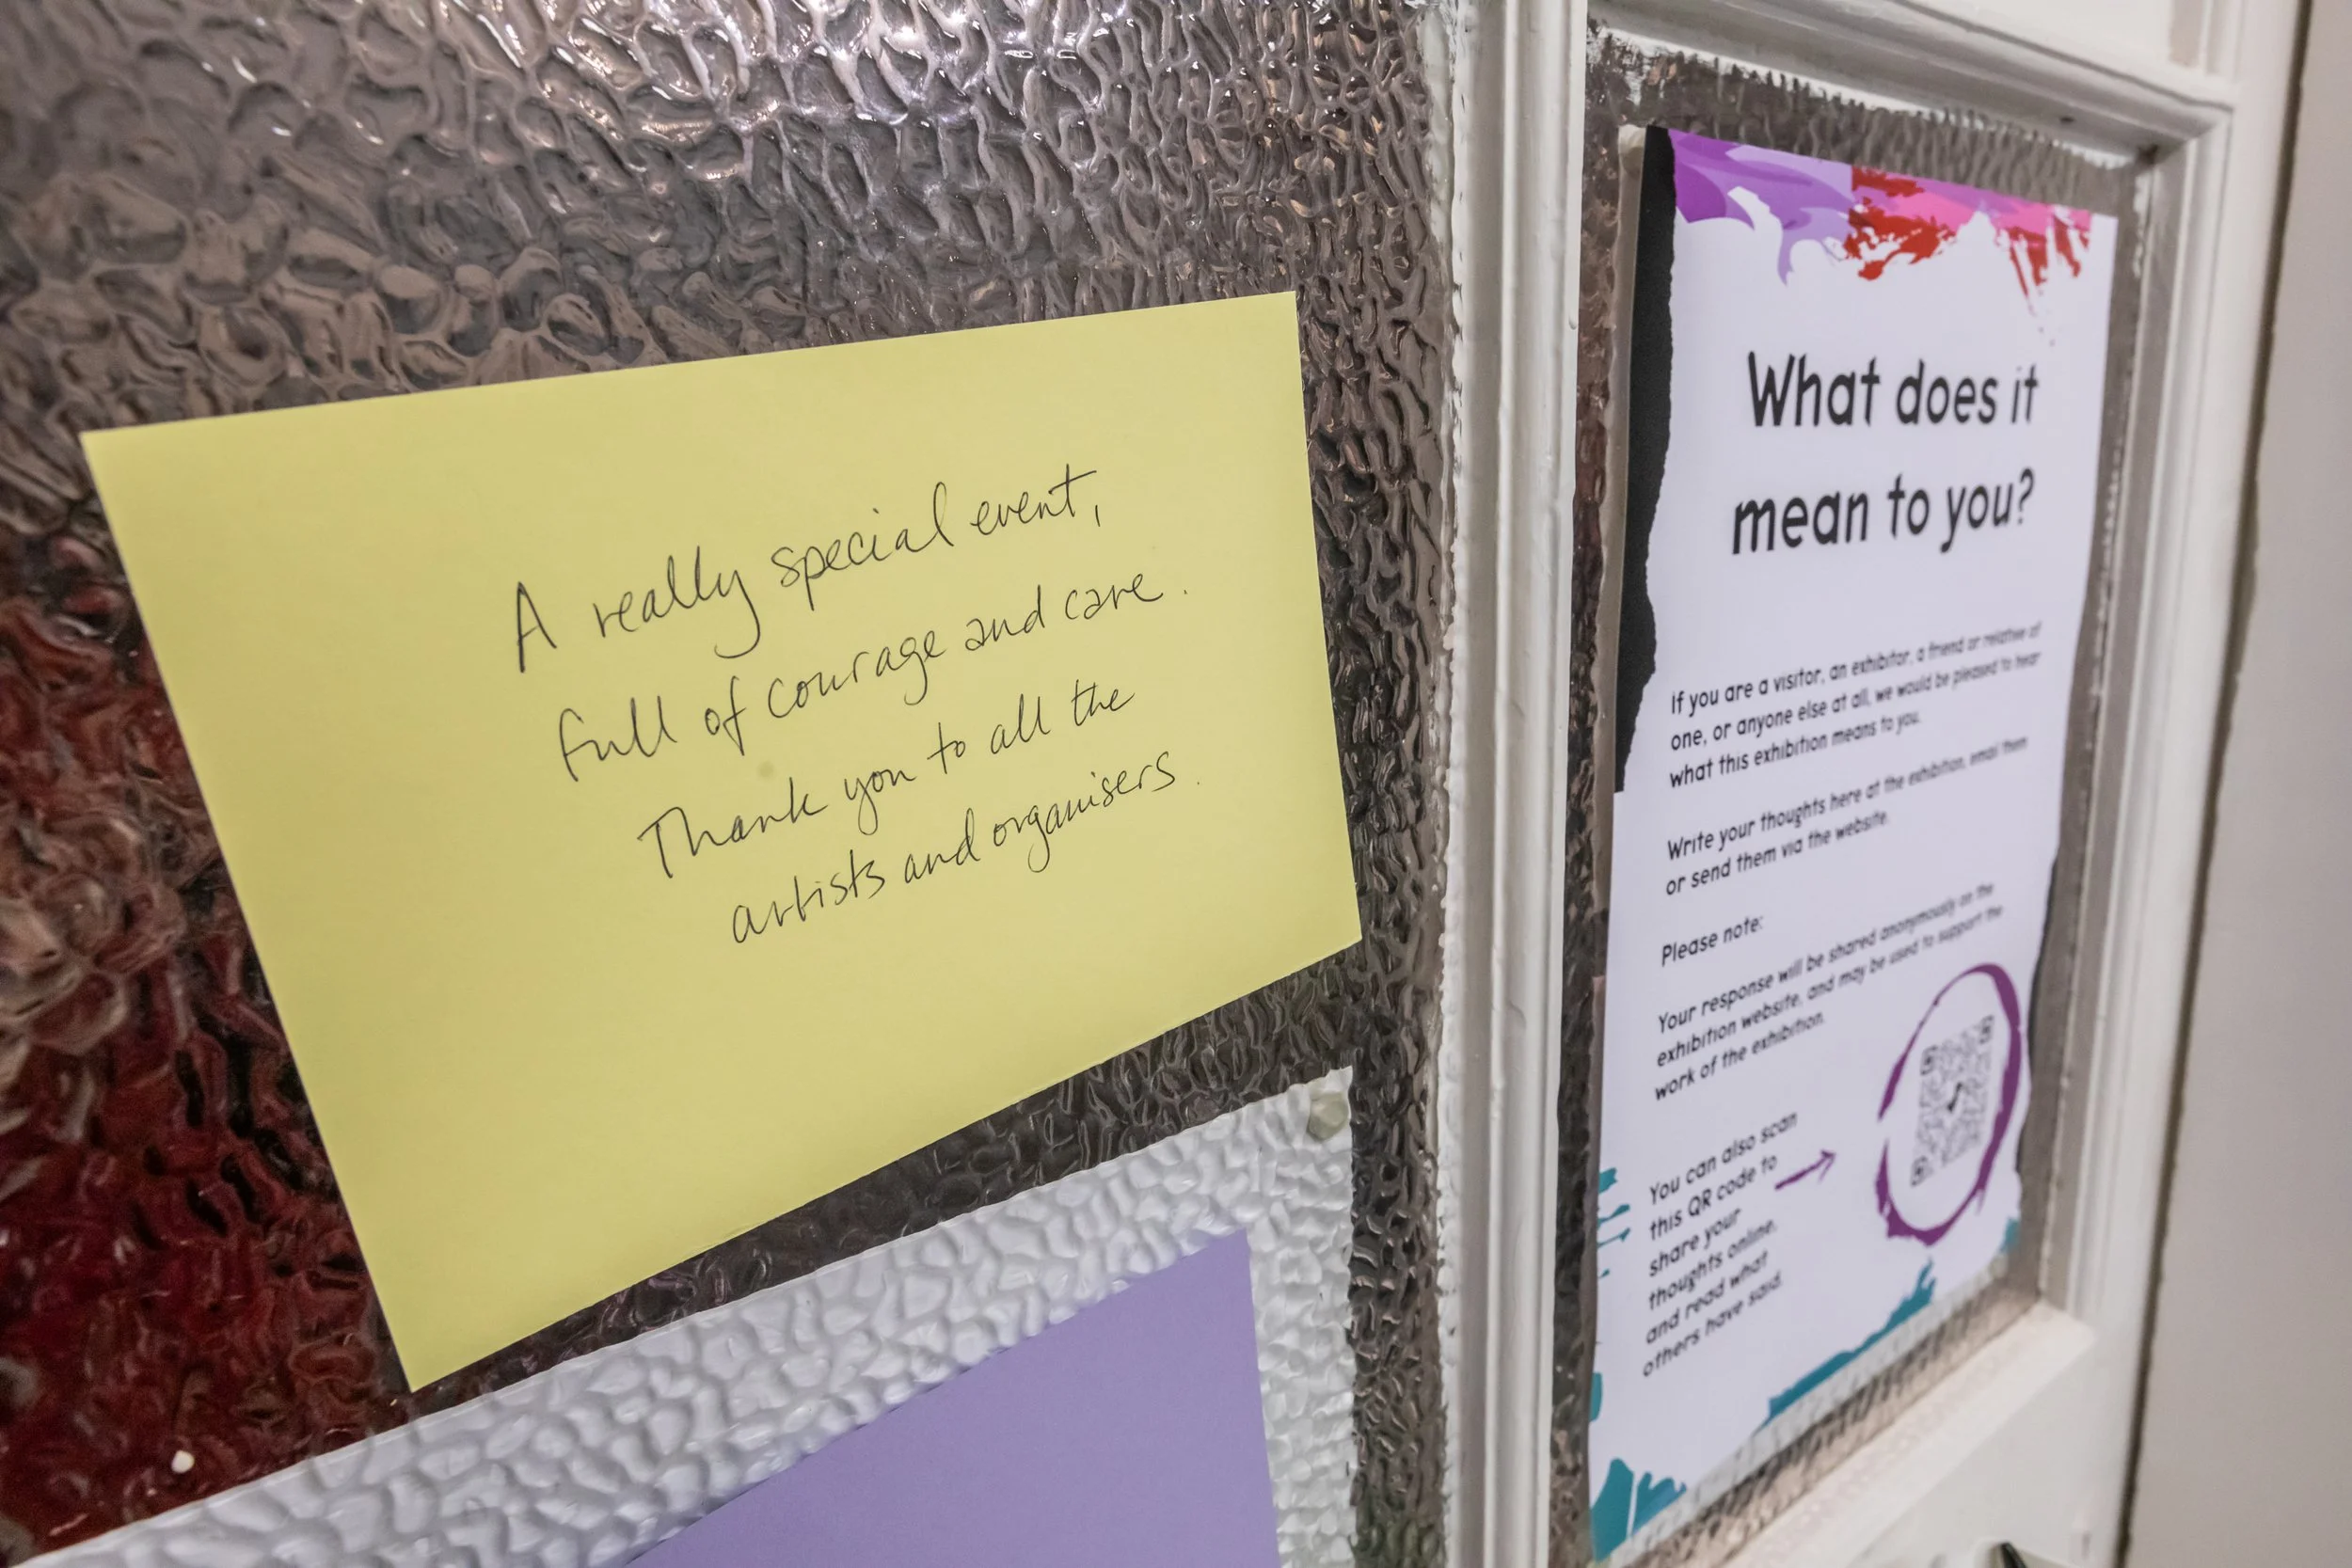 A really special event,
full of courage and care.
Thank you to all the
artists and organisers.
What does it
mean to you?
If you are a visitor, an exhibitor, a friend or relative of
one, or anyone else at all, we would be pleased to hear
what this exhibition means to you.
Write your thoughts here at the exhibition, email them
or send them via the website.
Please note:
Your response will be shared anonymously on the
exhibition website, and may be used to support the
work of the exhibition.
You can also scan
this QR code to
share your
thoughts online,
and read what
others have said.